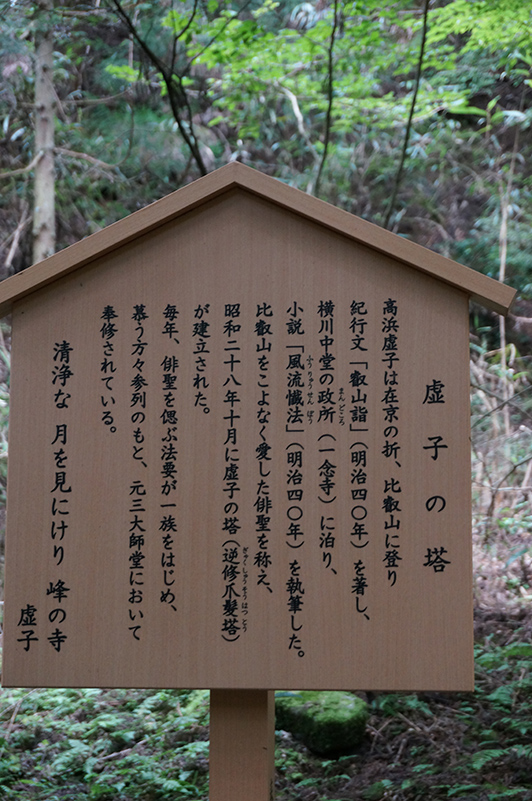 虚子の塔
高浜虚子は在京の折、比叡山に登り
紀行文「叡山詣」（明治四〇年）を著し、
横川中堂の政所（一念寺）に泊り、
まんどころ
小説「風流懺法」（明治四〇年）を執筆した。
ふうりゅうせんぽう
比叡山をこよなく愛した俳聖を称え、
昭和二十八年十月に虚子の塔（逆修爪髪塔）
ぎゃくしゅうそうはつとう
が建立された。
毎年、俳聖を偲ぶ法要が一族をはじめ、
慕う方々参列のもと、元三大師堂において
奉修されている。
清浄な 月を見にけり 峰の寺
虚子